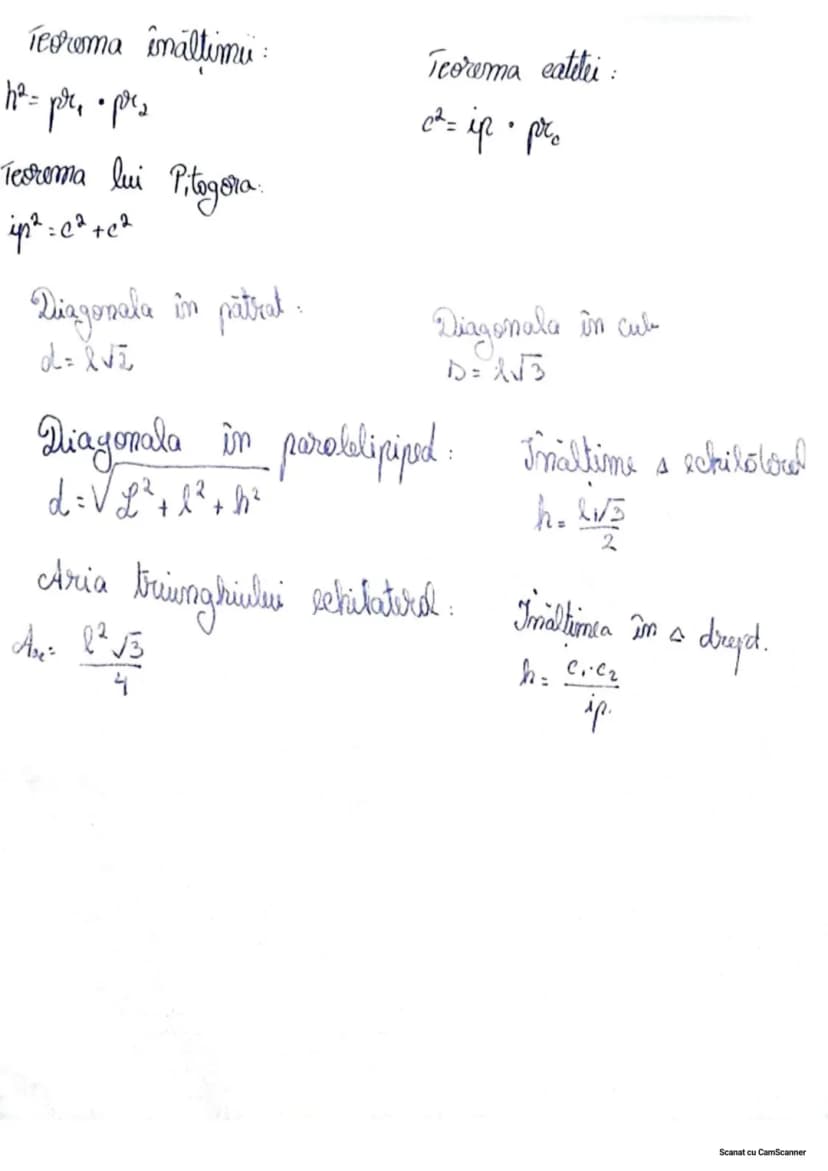 Teorema înălțimii :
h² = pr₁ · pr₂
Teorema catetei :
c² = ip · prc
Teorema lui Pitogora.
ip² = c² + c²
Diagonala în pătrat :
d = l√2
Diagonala în cub
D = l√3
Diagonala în paralelipiped :
d = √L² + l² + h²
Înălțime △ echilateral
h = l√3/2
Aria triunghiului echilateral :
A = l²√3/4
Înălțimea în △ drept.
h = c₁·c₂/ip.
Scanat cu CamScanner